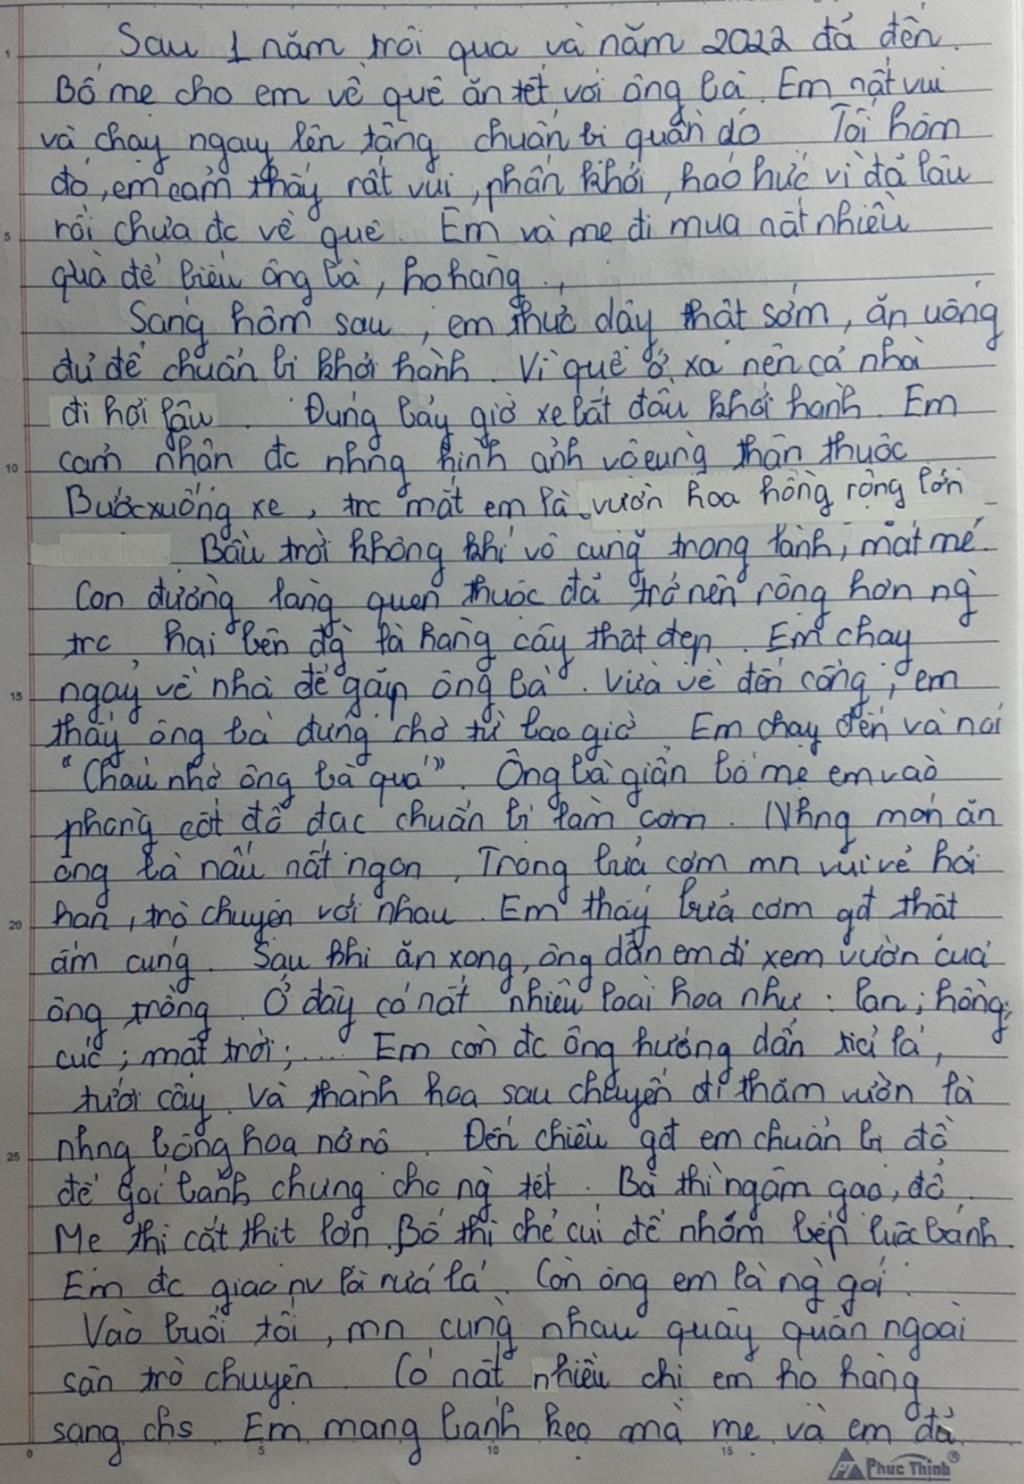 Sau 1 năm trôi qua và năm 2022 đã đến.
Bố mẹ cho em về quê ăn tết với ông bà. Em rất vui
và chạy ngay lên tầng chuẩn bị quần đó Tối hôm
đó, em cảm thấy rất vui, phấn khởi, háo hức vì đã lâu
rồi chưa đc về quê. Em và mẹ đi mua nất nhiều
quà để biếu ông bà, họ hàng.
Sáng hôm sau, em thức dậy thật sớm, ăn uống
đủ để chuẩn bị khởi hành. Vì quê ở xa nên cả nhà
đi hơi lâu. Đúng bảy giờ xe bắt đầu khởi hành. Em
cảm nhận đc nhng hình ảnh vô cùng thân thuộc
Bước xuống xe, trc mắt em là vườn hoa hồng rộng lớn
Bầu trời không khí vô cùng trong lành, mát mẻ.
Con đường làng quen thuộc đã trở nên rộng hơn ng
trc, hai bên đg là hàng cây thật đẹp. Em chạy
ngay về nhà để gặp ông bà. Vừa về đến cổng, em
thấy ông bà đứng chờ từ bao giờ Em chạy đến và nói
"Cháu nhớ ông bà quá". Ông bà giận bố mẹ em vào
phòng cất đồ đạc chuẩn bị làm cơm. Nhng món ăn
ông bà nấu nất ngon, Trong bữa cơm mn vui vẻ hỏi
han, trò chuyện với nhau. Em thấy bữa cơm gđ thật
ấm cúng. Sau khi ăn xong, ông dẫn em đi xem vườn của
ông trồng. Ở đây có nất nhiều loài hoa như: lan; hồng;
cúc; mặt trời;.... Em còn đc ông hướng dẫn tỉa lá,
tưới cây. Và thành hoa sau chuyến đi thăm vườn là
nhng bông hoa nở nộ. Đến chiều gđ em chuẩn bị đồ
để gói bánh chưng cho ng tết. Bà thì ngâm gạo, đỗ.
Mẹ thì cắt thịt lợn. Bố thì chẻ củi để nhóm bếp luộc bánh.
Em đc giao nv là rửa lá. Còn ông em là ng gói.
Vào buổi tối, mn cùng nhau quây quần ngoài
sân trò chuyện. Có nất nhiều chị em họ hàng
sang chs Em mang bánh kẹo mà mẹ và em đã
Phuc Thinh